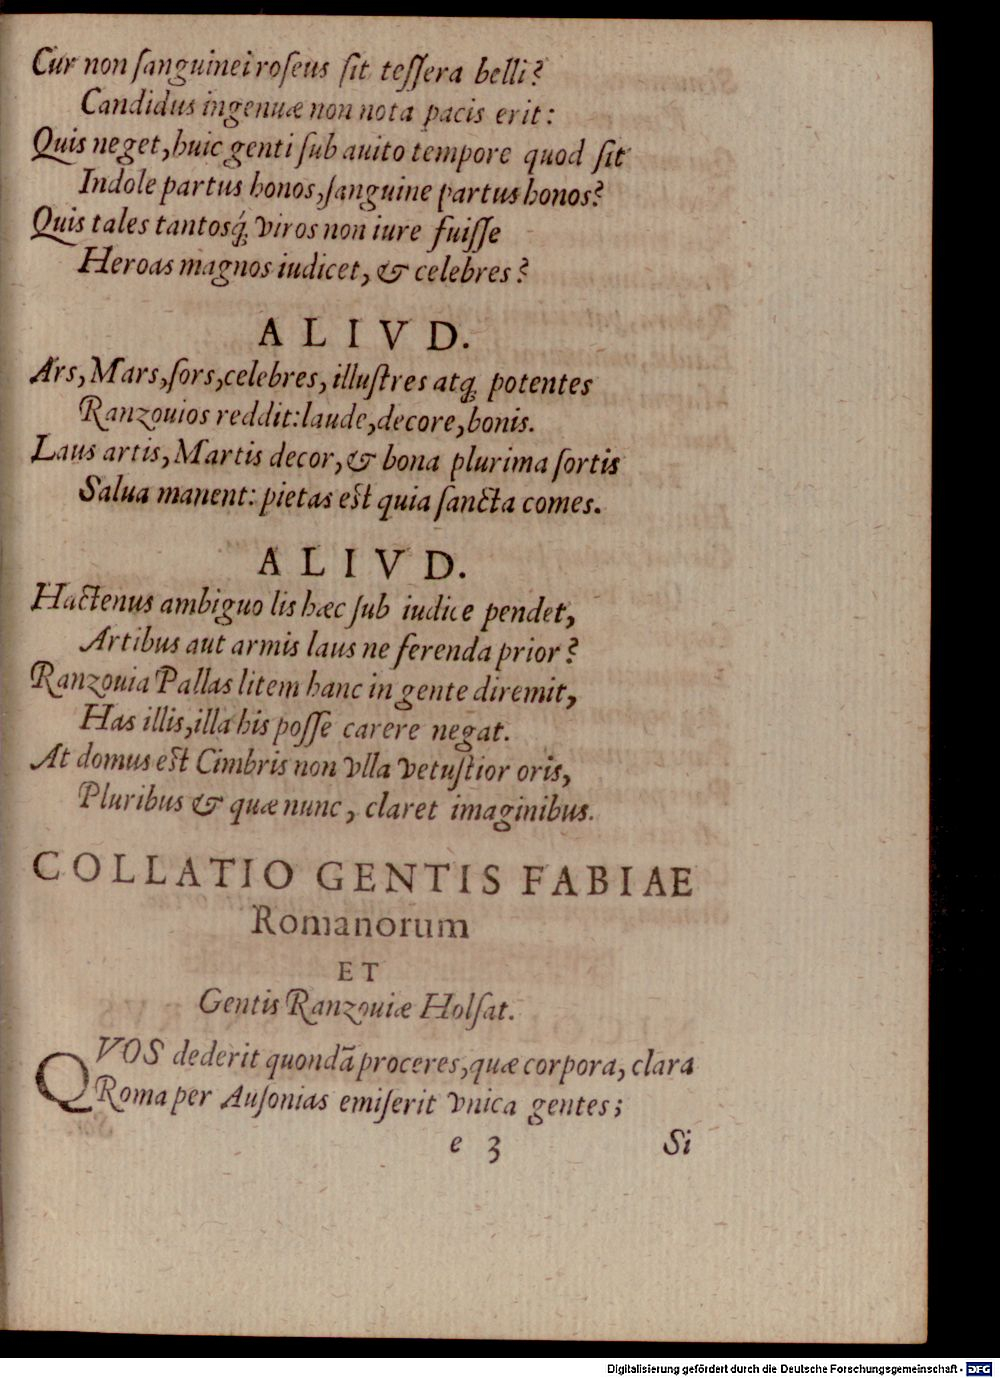 Cur non ſanguinei roſeus ſit teſſera belli?
Candidus ingenuæ non nota pacis erit:
Quis neget, huic genti ſub auito tempore quod ſit
Indole partus honos, ſanguine partus honos?
Quis tales tantosq́; viros non iure fuiſſe
Heroas magnos iudicet, & celebres?
ALIVD.
Ars, Mars, ſors, celebres, illuſtres atq; potentes
Ranzouios reddit: laude, decore, bonis.
Laus artis, Martis decor, & bona plurima ſortis
Salua manent: pietas eſt quia ſancta comes.
ALIVD.
Hactenus ambiguo lis hæc ſub iudice pendet,
Artibus aut armis laus ne ferenda prior?
Ranzouia Pallas litem hanc in gente diremit,
Has illis, illa his poſſe carere negat.
At domus eſt Cimbris non vlla vetuſtior oris,
Pluribus & quæ nunc, claret imaginibus.
COLLATIO GENTIS FABIAE
Romanorum
ET
Gentis Ranzouiæ Holſat.
QVOS dederit quondã proceres, quæ corpora, clara
Roma per Auſonias emiſerit vnica gentes;
e 3 Si
Digitalisierung gefördert durch die Deutsche Forschungsgemeinschaft - DFG